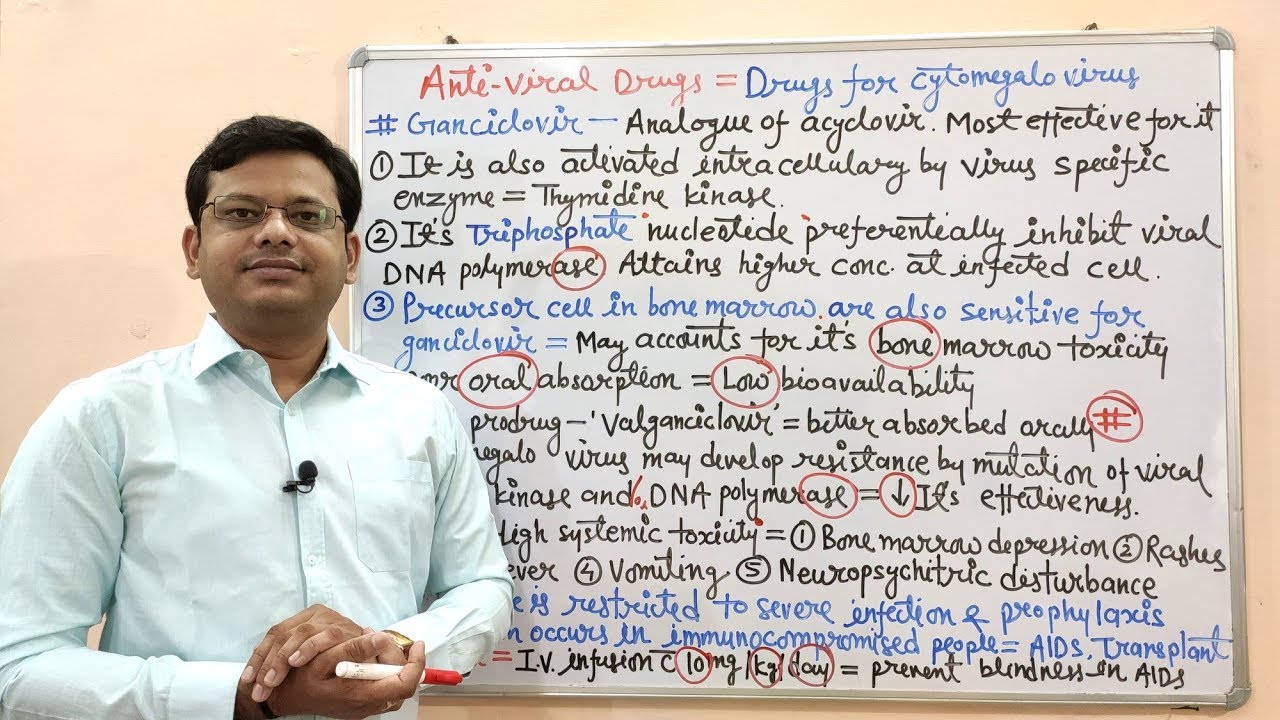 Anti-viral Drugs = Drugs for cytomegalo virus
# Ganciclovir - Analogue of acyclovir. Most effective for it
① It is also activated intracellulary by virus specific
enzyme = Thymidine kinase.
② It's Triphosphate nucleotide preferentially inhibit viral
DNA polymerase Attains higher conc. at infected cell.
③ Precursor cell in bone marrow are also sensitive for
ganciclovir = May accounts for it's bone marrow toxicity
oral absorption = Low bioavailability
prodrug - 'Valganciclovir' = better absorbed orally #
virus may develop resistance by mutation of viral
kinase and DNA polymerase = ↓ It's effectiveness.
High systemic toxicity = ① Bone marrow depression ② Rashes
④ Vomiting ⑤ Neuropsychitric disturbance
is restricted to severe infection & prophylaxis
occurs in immunocompromised people = AIDs, Transplant
= I.V. infusion c 10mg/kg/day = prevent blindness in AIDS